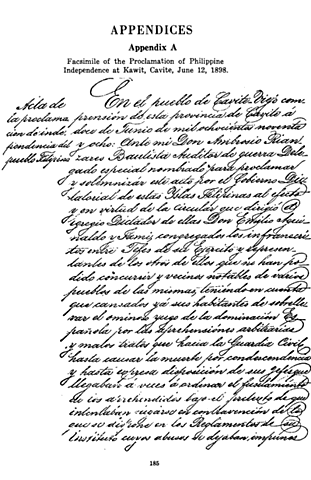 APPENDICES
Appendix A
Facsimile of the Proclamation of Philippine
Independence at Kawit, Cavite, June 12, 1898.
Acta de
la proclama
ción de inde
pendencia del
pueblo Filipino
En el pueblo de Cavite-Viejo com
prensión de esta provincia de Cavite á
doce de Junio de mil ochocientos noventa
y ocho: Ante mi Don Ambrosio Rian
zares Bautista Auditor de guerra Dele
gado especial nombrado para proclamar
y solemnizar este acto por el Gobierno Dic
tatorial de estas Yslas Filipinas al efecto
y en virtud de la circular que dirigió el
Egregio Dictador de ellas Don Emilio Agui
naldo y Famy, congregados los infrascrito
entre Jefes de su Ejercito y represen
tantes de los otros de ellos que no han po
dido concurrir y vecinos notables de varios
pueblos de las mismas, teniendo en cuenta
que cansados ya sus habitantes de sobrelle
var el ominoso yugo de la dominación Es
pañola por las aprehensiones arbitrarias
y malos tratos que hacia la Guardia Civil
hasta causar la muerte por condescendencia
y hasta expresa disposición de sus jefes que
llegaban á veces á ordenar el fusilamiento
de los aprehendidos bajo el pretexto de que
intentaban fugarse en contravención de lo
que se dispone en los Reglamentos de su
Instituto cuyos abusos se dejaban impunes
185